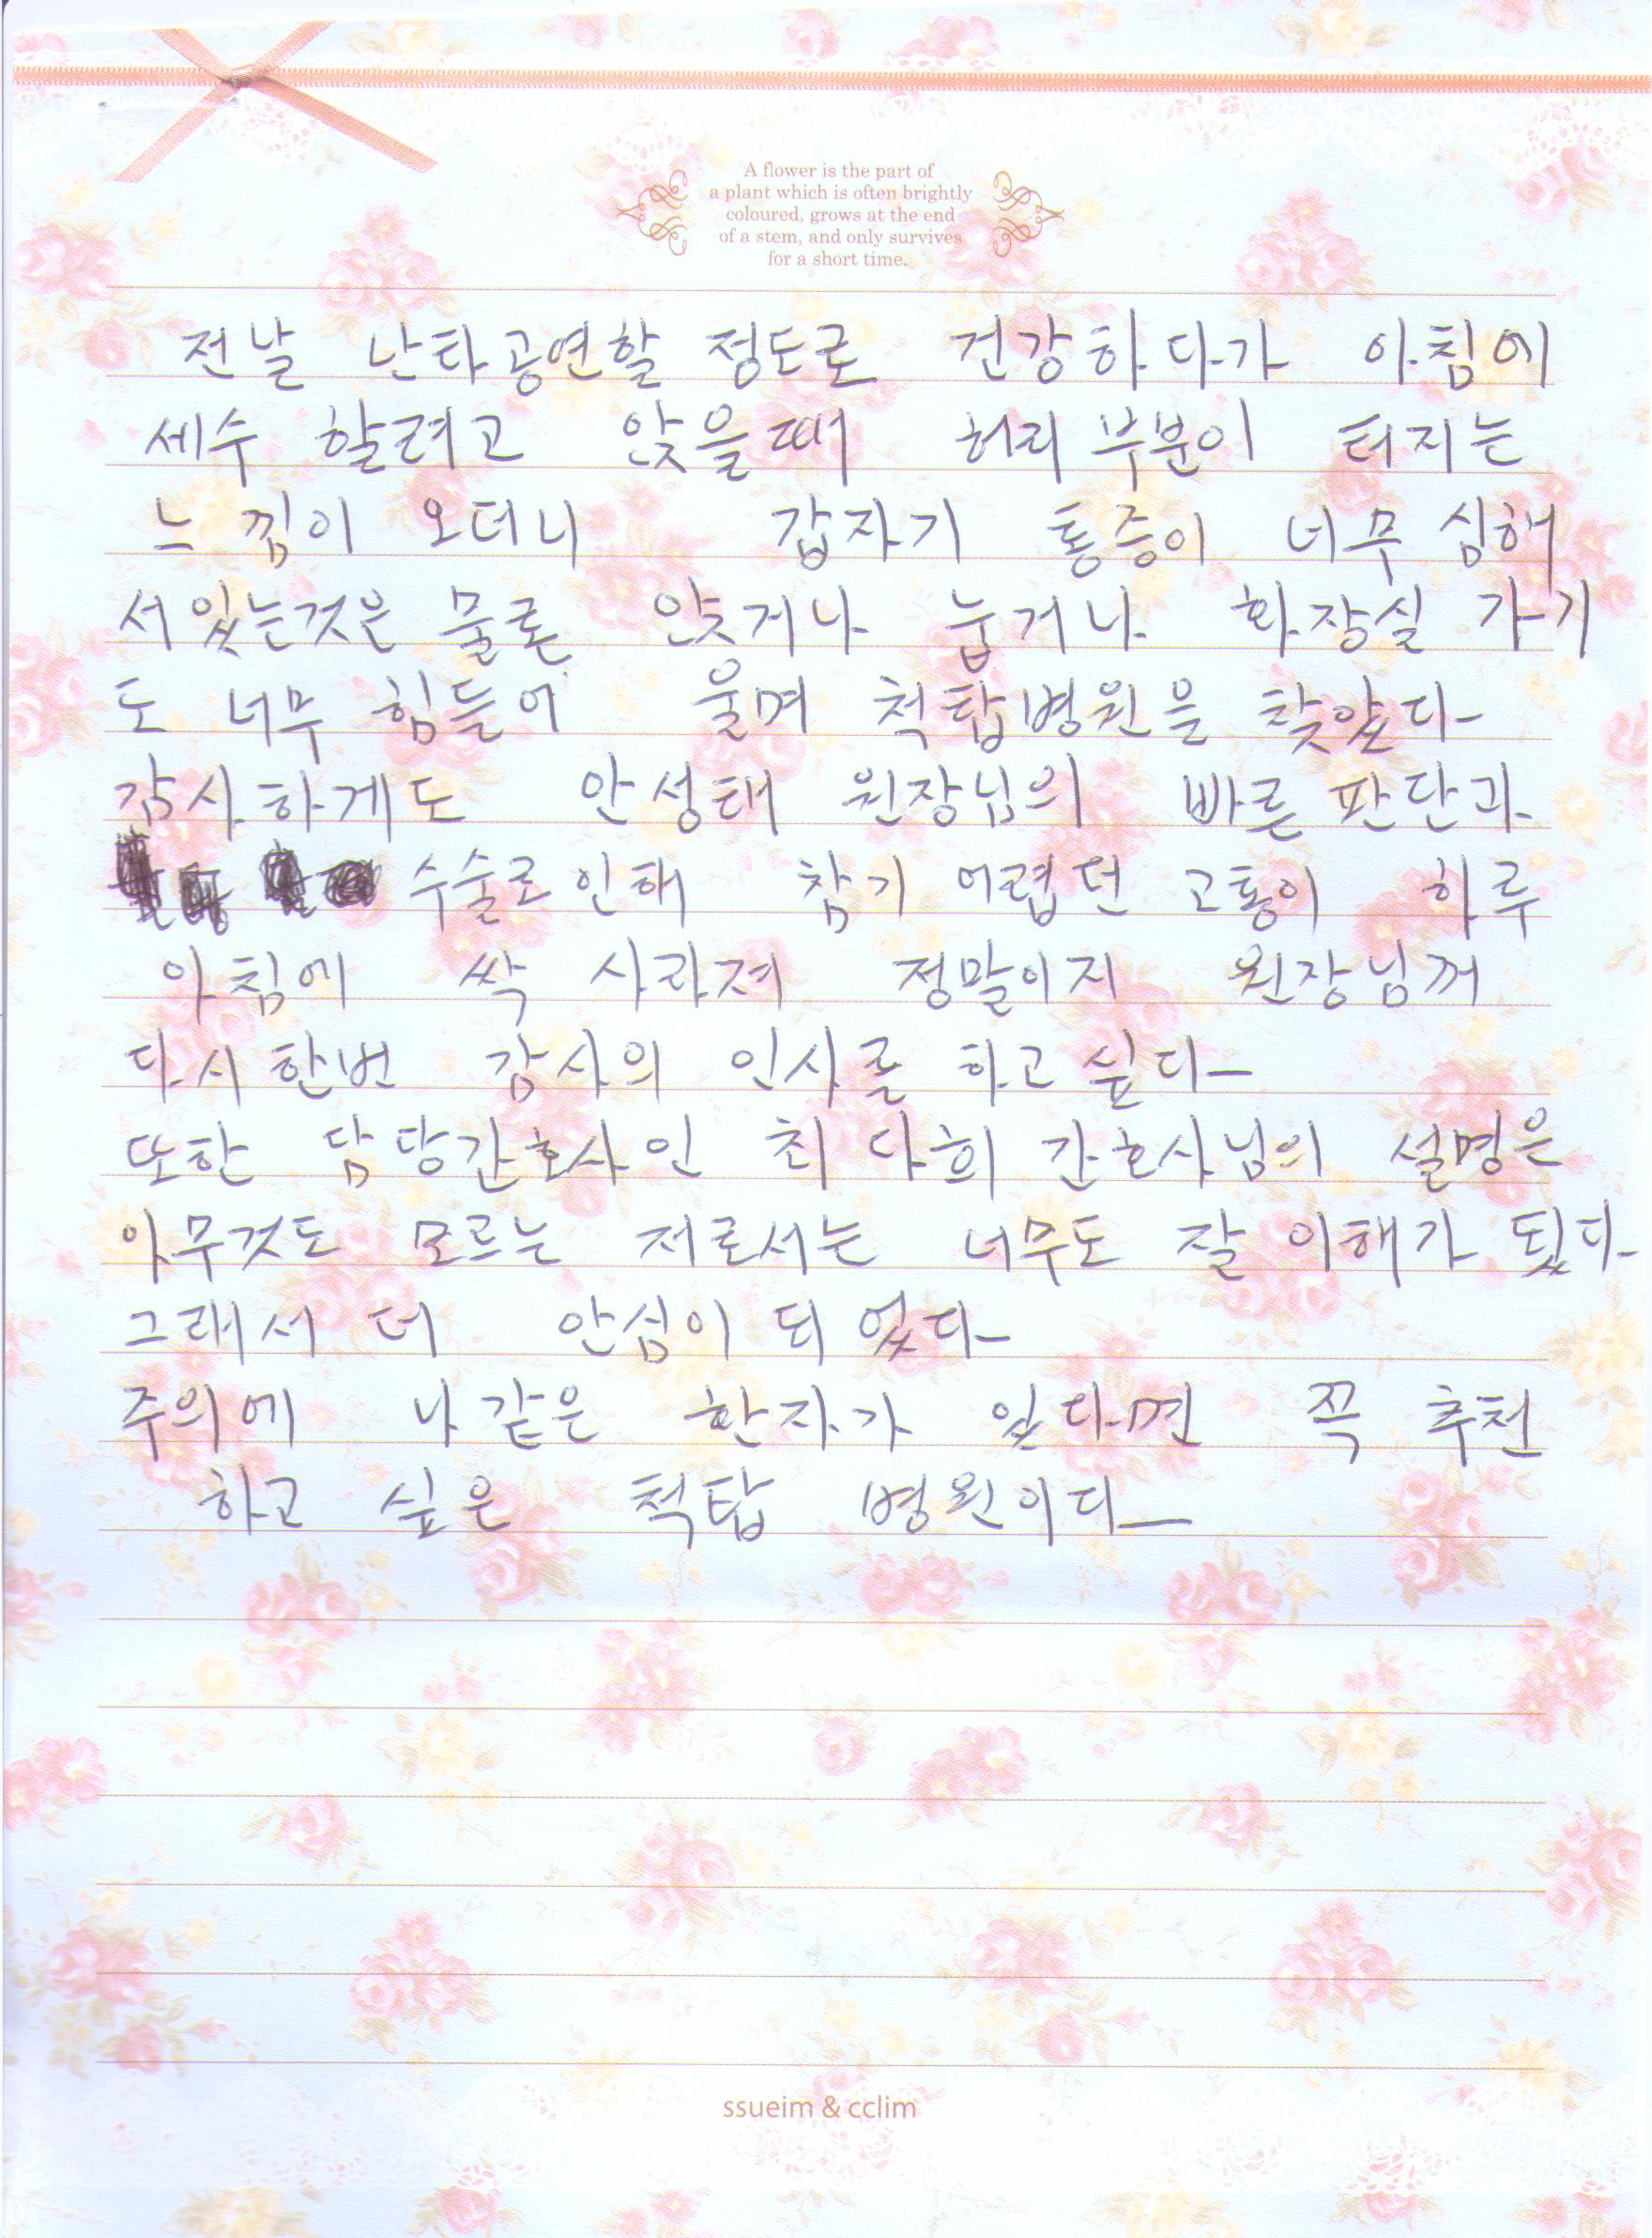 A flower is the part of
a plant which is often brightly
coloured, grows at the end
of a stem, and only survives
for a short time.
전날 난타공연할 정도로 건강하다가 아침에
세수 할려고 앉을때 허리 부분이 터지는
느낌이 오더니 갑자기 통증이 너무 심해
서있는것은 물론 앉거나 눕거나 화장실 가기
도 너무 힘들어 울며 척탑병원을 찾았다
감사하게도 안성태 원장님의 빠른 판단과
수술로 인해 참기 어렵던 고통이 하루
아침에 싹 사라져 정말이지 원장님께
다시한번 감사의 인사를 하고 싶다
또한 담당간호사인 최다희 간호사님의 설명은
아무것도 모르는 저로서는 너무도 잘 이해가 됬다
그래서 더 안심이 되었다
주의에 나같은 환자가 있다면 꼭 추천
하고 싶은 척탑 병원이다
ssueim & cclim